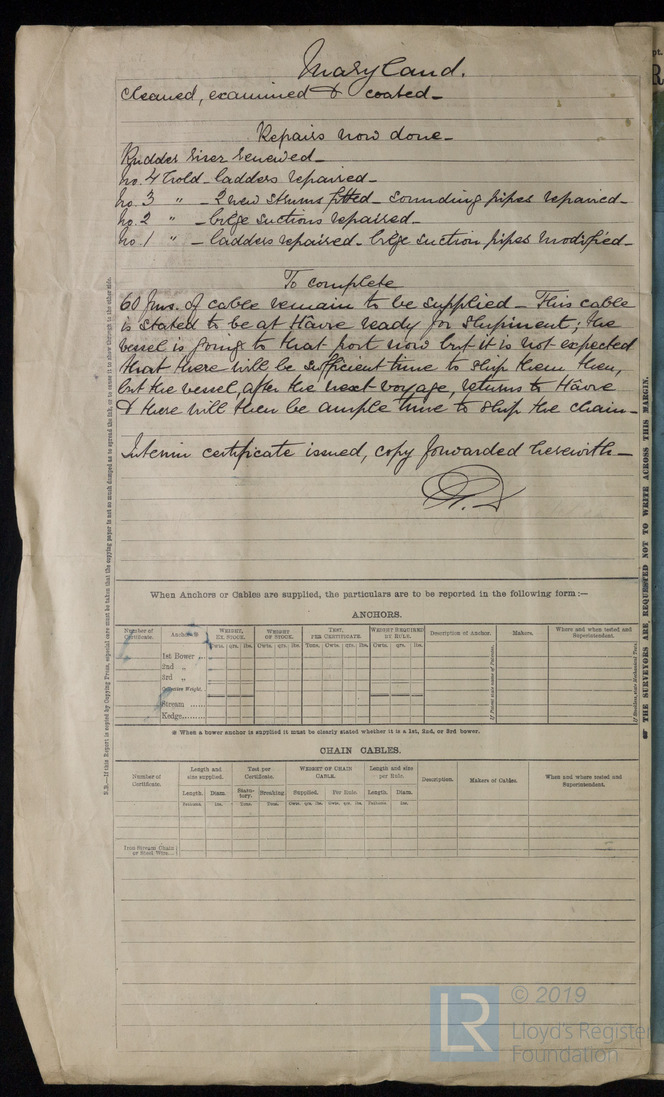 Maryland.
cleaned, examined & coated_
Repairs now done_
Rudder riser renewed_
No. 4 Hold_ ladders repaired_
No. 3 " _ 2 new strums fitted_ sounding pipes repaired_
No. 2 " _ bilge suctions repaired_
No. 1 " _ ladders repaired_ bilge suction pipes modified_
To complete
60 fms. of cable remain to be supplied_ This cable
is stated to be at Hâvre ready for shipment; the
vessel is going to that port now but it is not expected
that there will be sufficient time to ship them then,
but the vessel, after the next voyage, returns to Hâvre
& there will then be ample time to ship the chain_
Interim certificate issued, copy forwarded herewith_
N.B.—If this Report is copied by Copying Press, especial care must be taken that the copying paper is not so much damped as to spread the ink, or to cause it to show through to the other side.
☞ THE SURVEYORS ARE REQUESTED NOT TO WRITE ACROSS THIS MARGIN.
When Anchors or Cables are supplied, the particulars are to be reported in the following form :—
ANCHORS.
Number of Certificate. Anchors.※ WEIGHT, EX. STOCK. WEIGHT OF STOCK. TEST, PER CERTIFICATE. WEIGHT REQUIRED BY RULE. Description of Anchor. Makers. Where and when tested and Superintendent.
Cwts. qrs. lbs. Cwts. qrs. lbs. Tons. Cwts. qrs. lbs. Cwts. qrs. lbs.
1st Bower ,,
2nd ,,
3rd ,,
Collective Weight.
Stream ......
Kedge.......
※ When a bower anchor is supplied it must be clearly stated whether it is a 1st, 2nd, or 3rd bower.
CHAIN CABLES.
Number of Certificate. Length and size supplied. Test per Certificate. WEIGHT OF CHAIN CABLE. Length and size per Rule. Description. Makers of Cables. When and where tested and Superintendent.
Length. Diam. Statutory. Breaking. Supplied. Per Rule. Length. Diam.
Fathoms. Ins. Tons. Tons. Cwts. qrs. lbs. Cwts. qrs. lbs. Fathoms. Ins.
Iron Stream Chain
or Steel Wire...
© 2019
LR
Lloyd's Register
Foundation